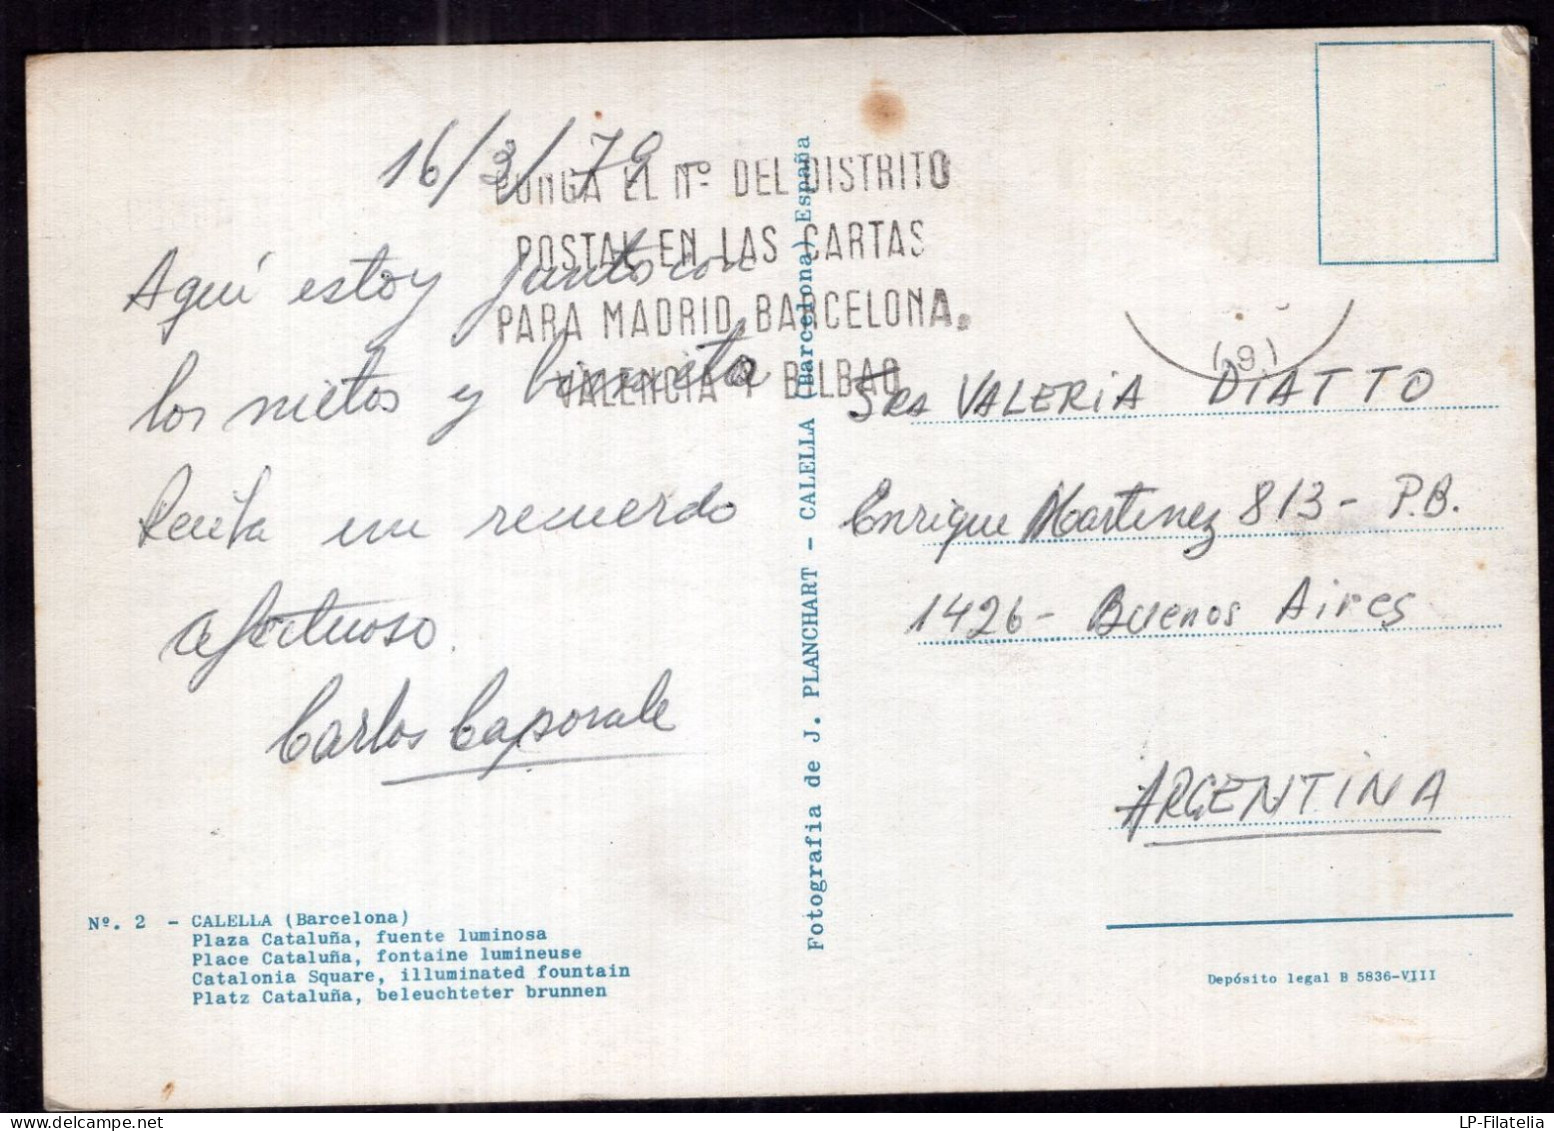 16/3/79
Aquí estoy junto con
los nietos y bisnieta
un recuerdo
afectuoso.
Carlos Caporale
PONGA EL Nº DEL DISTRITO
POSTAL EN LAS CARTAS
PARA MADRID, BARCELONA,
VALENCIA Y BILBAO
Nº. 2 - CALELLA (Barcelona)
Plaza Cataluña, fuente luminosa
Place Cataluña, fontaine lumineuse
Catalonia Square, illuminated fountain
Platz Cataluña, beleuchteter brunnen
Fotografia de J. PLANCHART - CALELLA (Barcelona) España
Sra VALERIA DIATTO
Enrique Martinez 813 - P.B.
1426 - Buenos Aires
ARGENTINA
Depósito legal B 5836-VIII
LP-Filatelia